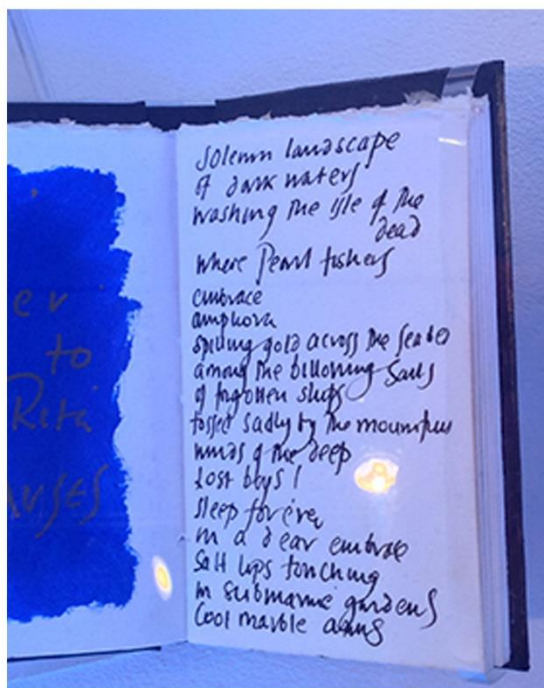 er
to
Rita
Solemn landscape
of dark waters
washing the isle of the
dead
where Pearl fishers
embrace
amphora
spilling gold across the seabed
among the billowing Sails
of forgotten ships
tossed sadly by the mournful
winds of the deep
Lost boys!
sleep forever
in a dear embrace
Salt lips touching
in submarine gardens
Cool marble arms